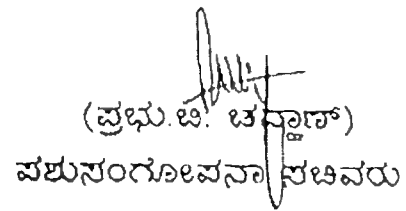 (ಪ್ರಭು.ಬಿ. ಚವ್ಹಾಣ್)
ಪಶುಸಂಗೋಪನಾ ಸಚಿವರು